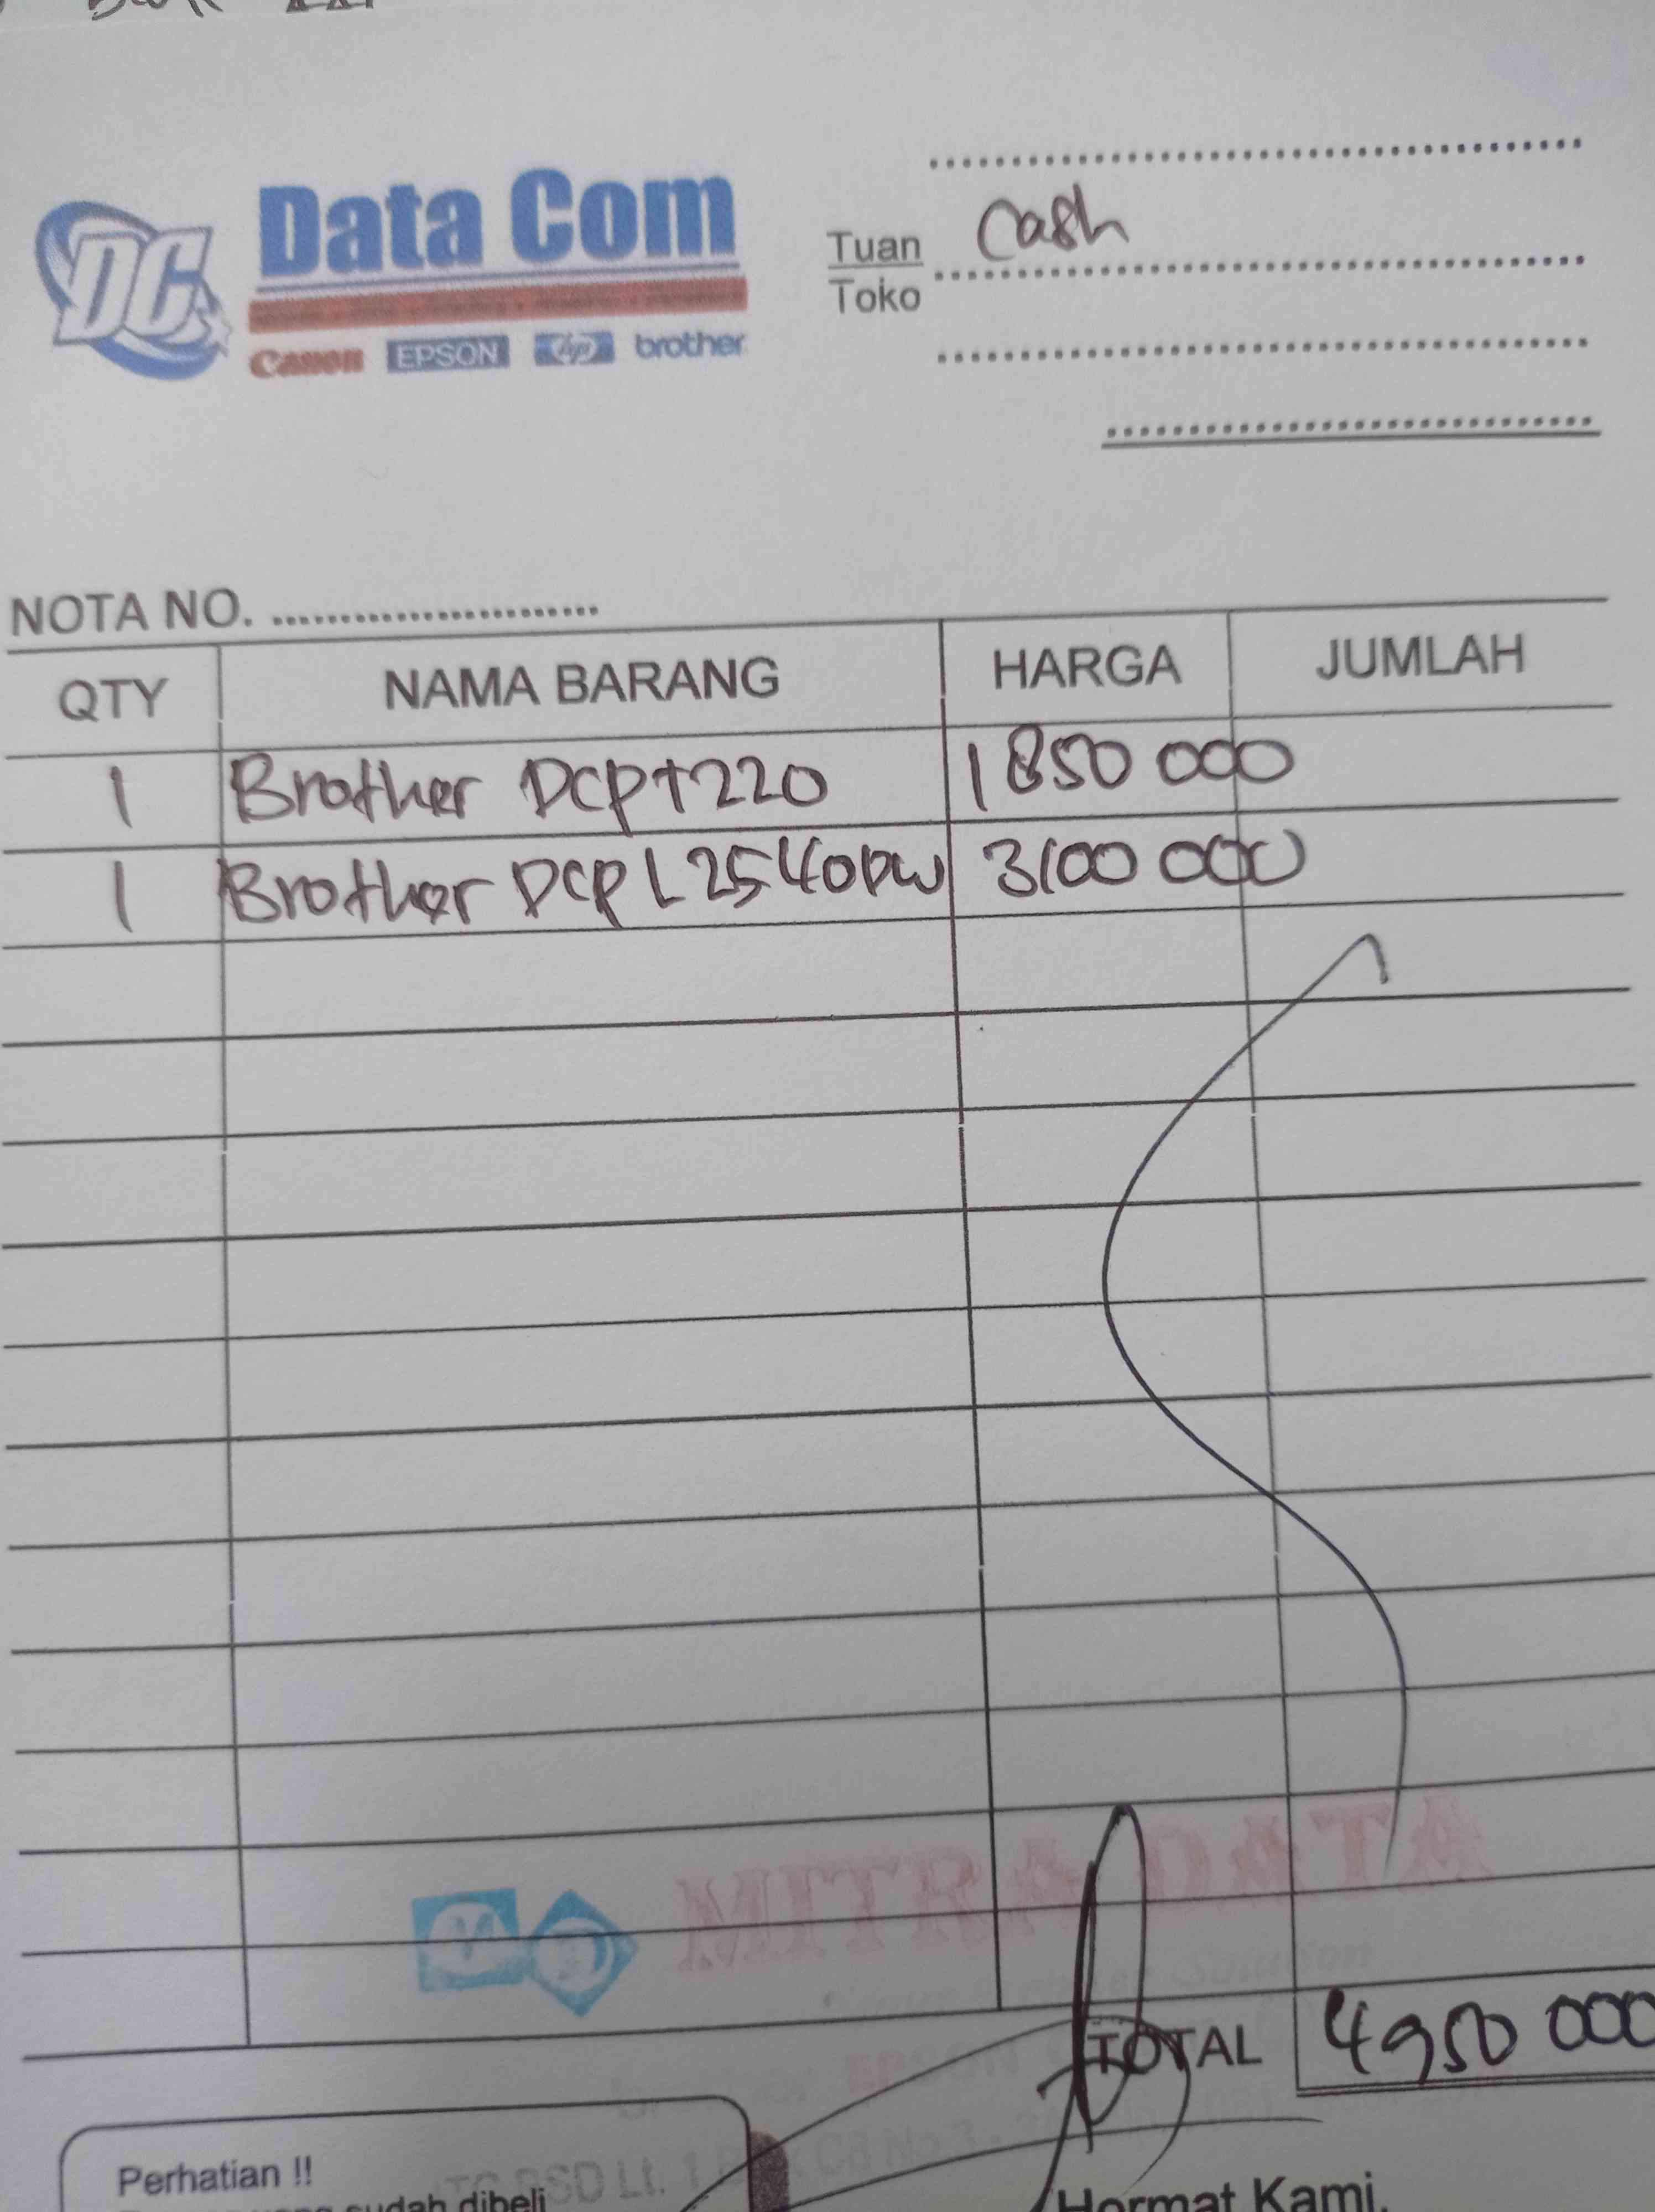 DC
Data Com
Canon EPSON hp brother
Tuan Cash
Toko
NOTA NO.
QTY NAMA BARANG HARGA JUMLAH
1 Brother DCPT220 1850 000
1 Brother DCP L2540DW 3100 000
MITRA DATA
TOTAL 4950 000
Perhatian !!
sudah dibeli
Hormat Kami,